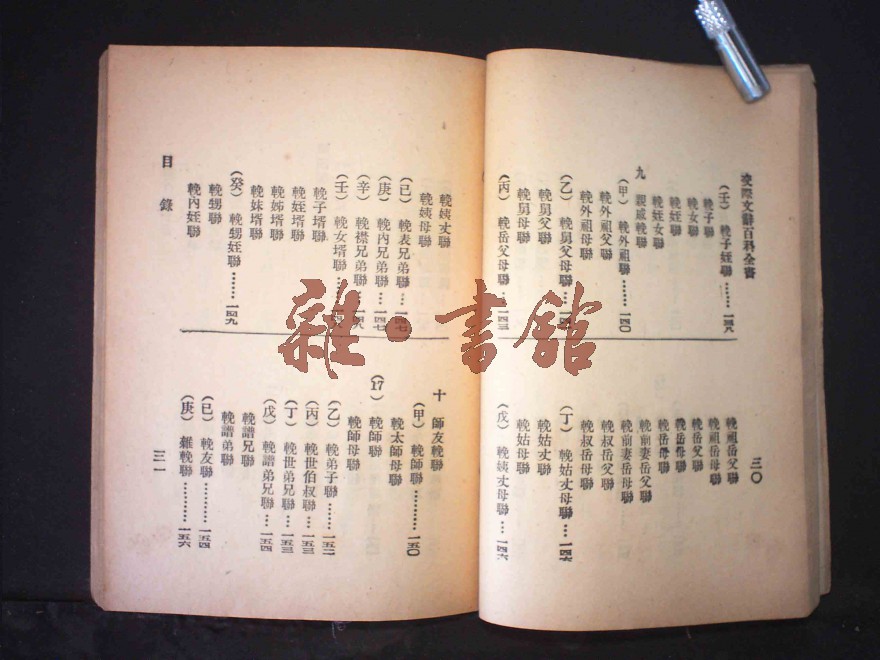 交際文辭百科全書
(壬) 輓子姪聯……一三八
輓子聯
輓女聯
輓姪聯
輓姪女聯
九 親戚輓聯
(甲) 輓外祖聯……一四〇
輓外祖父聯
輓外祖母聯
(乙) 輓舅父母聯
輓舅父聯
輓舅母聯
(丙) 輓岳父母聯…一四三
三〇
輓祖岳父聯
輓祖岳母聯
輓岳父聯
輓岳母聯
輓岳母聯
輓前妻岳父聯
輓前妻岳母聯
輓叔岳父聯
輓叔岳母聯
(丁) 輓姑丈母聯…一四六
輓姑丈聯
輓姑母聯
(戊) 輓姨丈母聯…一四六
輓姨丈聯
輓姨母聯
(已) 輓表兄弟聯…一四七
(庚) 輓內兄弟聯…一四七
(辛) 輓襟兄弟聯…一四八
(壬) 輓女壻聯
輓子壻聯
輓姪壻聯
輓姊壻聯
輓妹壻聯
(癸) 輓甥姪聯……一四九
輓甥聯
輓內姪聯
目 錄
十 師友輓聯
(甲) 輓師聯………一五〇
輓太師母聯
(17) 輓師聯
輓師母聯
(乙) 輓弟子聯…一五二
(丙) 輓世伯叔聯…一五三
(丁) 輓世弟兄聯…一五三
(戊) 輓譜弟兄聯…一五四
輓譜兄聯
輓譜弟聯
(已) 輓友聯………一五四
(庚) 雜輓聯………一五六
三一
雜·書館